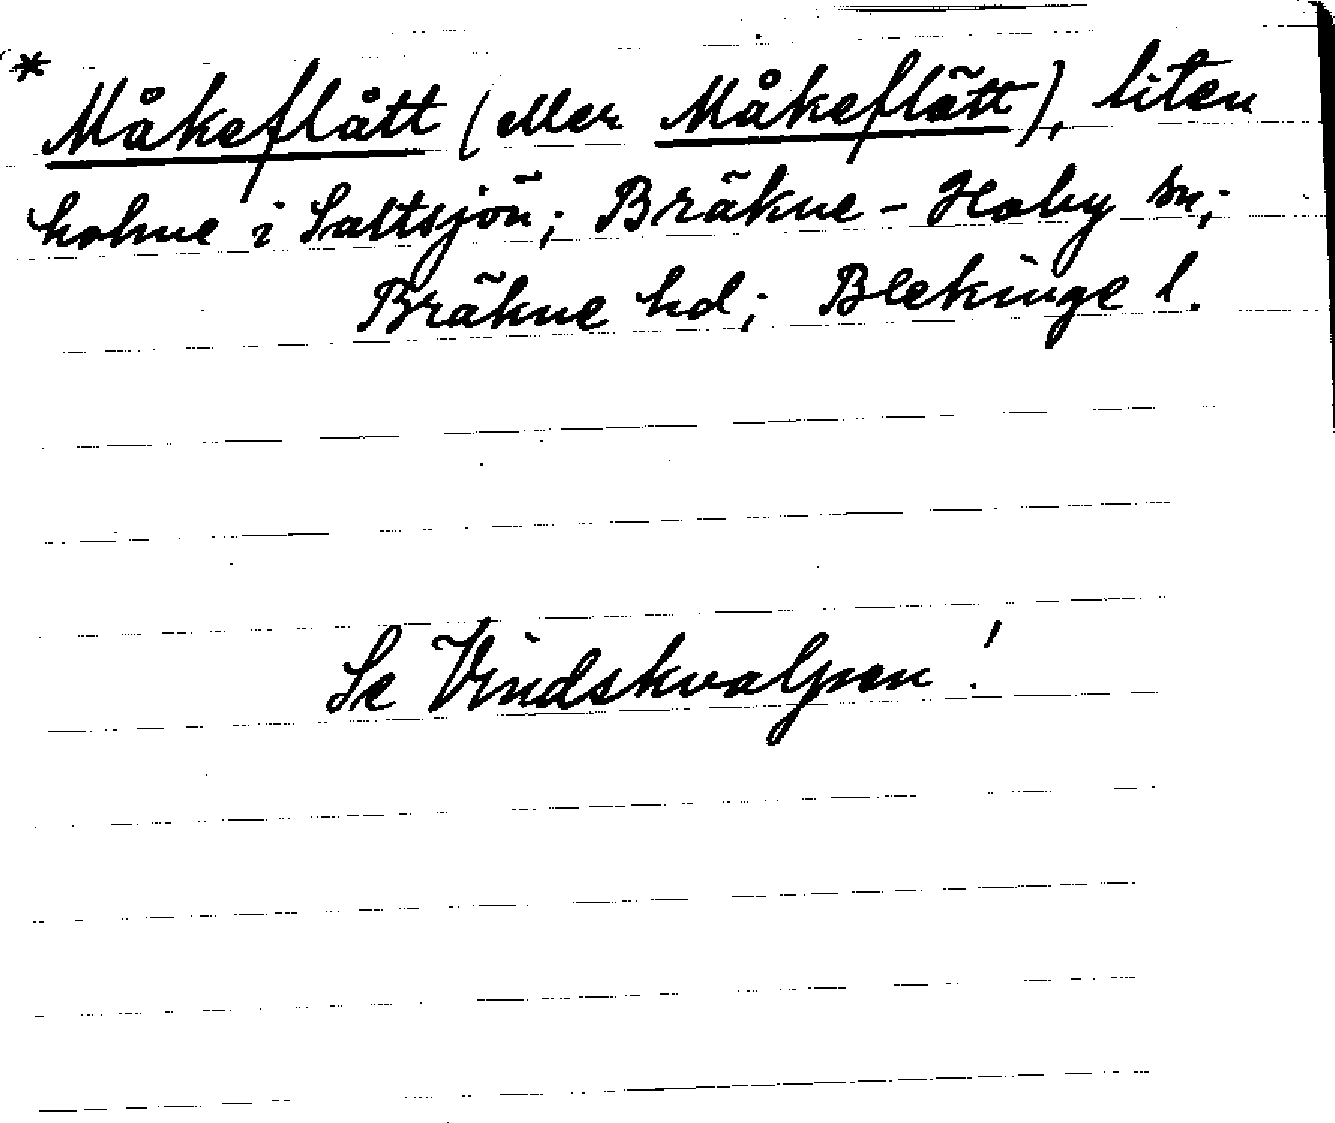 * Måkeflått (eller Måkeflätt), liten
holme i Saltsjön; Bräkne-Hoby sn;
Bräkne hd; Blekinge l.
Se Vindskvalpan!